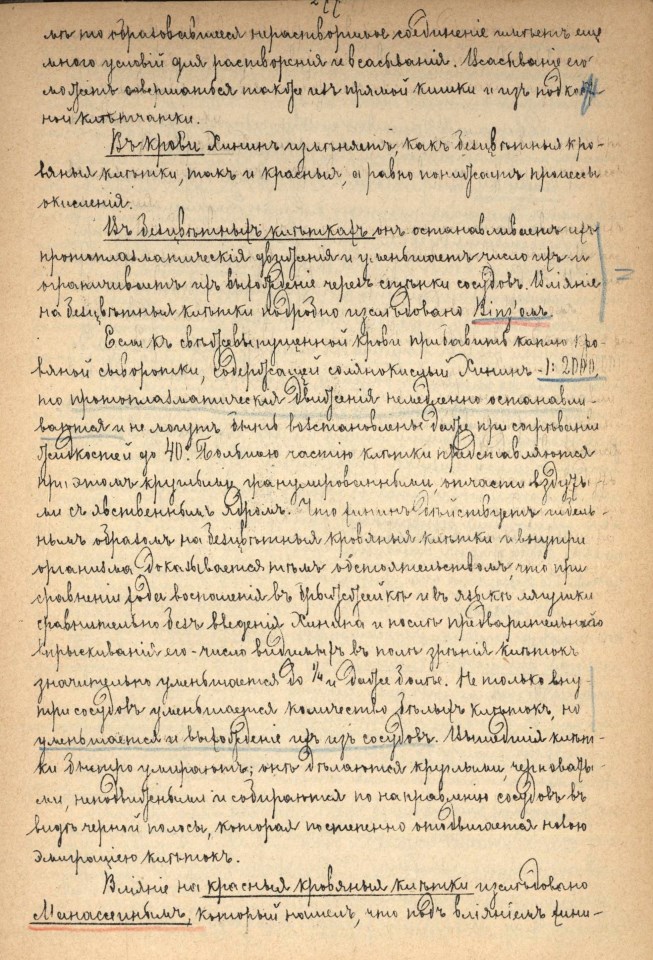 277
мъ то образовавшееся нерастворимое соединенiе имѣетъ еще
много условiй для растворенiя и всасыванiя. Всасыванiе его
можетъ совершаться также изъ прямой кишки и изъ подкож-
ной клѣтчатки.
Въ крови Хининъ измѣняетъ, какъ безцвѣтныя кро-
вяныя клѣтки, такъ и красныя, а равно понижаетъ процессы
окисленiя.
Въ безцвѣтныхъ клѣткахъ онъ останавливаетъ ихъ
протоплазматическiя движенiя и уменьшаетъ число ихъ и
ограничиваетъ ихъ выхожденiе черезъ стѣнки сосудовъ. Влiянiе
на безцвѣтныя клѣтки подробно изслѣдовано Binz'омъ.
Если къ свѣжевыпущенной крови прибавить каплю кро-
вяной сыворотки, содержащей солянокислый Хининъ - 1: 2000,
то протоплазматическiя движенiя немедленно останавли-
ваются и не могутъ быть возстановлены даже при согрѣванiи
жидкостей до 40°. Большею частiю клѣтки представляются
при этомъ круглыми гранулированными, отчасти вздуты-
ми съ явственнымъ ядромъ. Что хининъ дѣйствуетъ гибель-
нымъ образомъ на безцвѣтныя кровяныя клѣтки и внутри
организма доказывается тѣмъ обстоятельствомъ, что при
сравненiи хода воспаленiя въ брыжжейкѣ и въ языкѣ лягушки
сравнительно безъ введенiя Хинина и послѣ предварительнаго
впрыскиванiя его - число видимыхъ въ полѣ зрѣнiя клѣтокъ
значительно уменьшается до ¼ и даже болѣе. Не только вну-
три сосудовъ уменьшается количество бѣлыхъ клѣтокъ, но
уменьшается и выхожденiе ихъ изъ сосудовъ. Вышедшiя клѣт-
ки быстро умираютъ; онѣ дѣлаются круглыми, черноваты-
ми, неподвижными и собираются по направленiю сосудовъ въ
видѣ черной полосы, которая постепенно отодвигается новою
эмиграцiею клѣтокъ.
Влiянiе на красныя кровяныя клѣтки изслѣдовано
Манассеинымъ, который нашелъ, что подъ влiянiемъ хини-